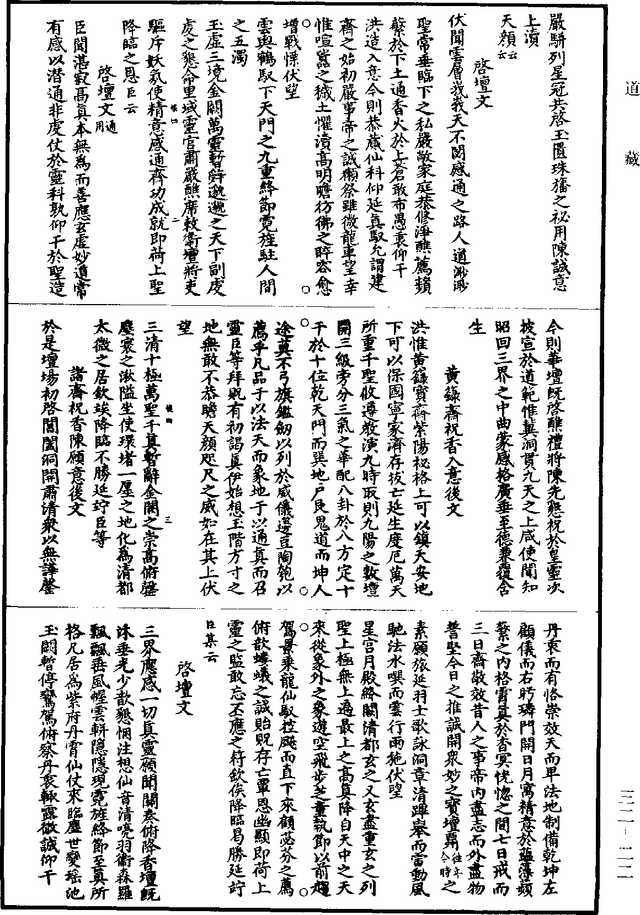 道藏
嚴駢列星冠共啓玉匱珠獦之祕用陳誠意
上瀆
天顏云云
啓壇文
伏聞雲層峩峩天不閡感通之路人道渺渺
聖常垂臨下之私嚴敞家庭恭修淨醮薦蘋
蘩於下土通香火於上蒼敢布愚衷仰干
洪造入意今則恭蕆仙科仰延真馭允謂建
齋之始初嚴事帝之誠獺祭雖微龍車望幸
惟喧囂之穢土懼瀆高明瞻彷彿之睟容愈
增戰慄伏望
雲輿鶴馭下天門之九重絳節霓旌駐人間
之五濁
玉虛三境金闕萬靈暫辭邈邈之天下副虔
虔之懇命里域靈官肅嚴醮席敕衛壇將吏
驅斥妖氛使精意感通齋功成就即荷上聖
降臨之恩臣云
啓壇文通用
臣聞湛寂高真本無為而善應玄虛妙道常
有感以潛通非虔仗於靈科孰仰干於聖造
今則華壇既啓醮禮將陳先懇祝於皇靈次
披宣於道範惟冀洞貫九天之上咸使聞知
昭回三界之中曲蒙感格廣垂至德兼覆含
生
黃籙齋祝香入意後文
洪惟黃籙寶齋紫陽祕格上可以鎮天安地
下可以保國寧家濟存拔亡延生度厄萬天
所重千聖攸遵敢演九時取則九陽之數壇
開三級旁分三氣之華配八卦於八方定十
干於十位乾天門而巽地戶艮鬼道而坤人
途莫不弓旗鑑劒以列於威儀邊豆陶匏以
薦乎凡品于以法天而象地于以通真而召
靈臣等拜貺有初謁真伊始根玉階方寸之
地無敢不恭瞻天顏咫尺之威如在其上伏
望
三清十極萬聖千真暫辭金闕之崇高俯鑒
塵寰之湫隘坐使環堵一廛之地化為清都
太微之居欽竢降臨不勝延竚臣等
諸齋祝香陳願意後文
於是壇場初啓閶闔洞開肅清衆以無譁罄
丹衷而有恪崇效天而卑法地制備乾坤左
顧儀而右眄璘門開日月寓精意於蘊藻蘋
蘩之內格霄真於杳冥恍惚之間七日戒而
三日齋敬效昔人之事帝內盡志而外盡物
誓堅今日之推誠開衆妙之寶壇蕆往年今時之
素願旅延羽士歌詠洞章清蹕舉而雷動風
馳法水噀而雲行雨施伏望
星宮月殿絳闕清都玄之又玄盡重玄之列
聖上極無上邊最上之高真降自天中之天
來從象外之象遊空飛步芝童執節以前趨
駕景乘龍仙馭控飈而直下來顧苾芬之薦
俯歆螻蟻之誠貽貺存亡覃恩幽顯即荷上
靈之監敢忘丕應之符欽俟降臨曷勝延竚
臣某云
啓壇文
三界應感一切真靈願聞關奏俯降香壇既
沐垂光少歆懇悃注想仙音清喨羽衛森羅
飄飄乘風幄雲軿隱隱現霓旌絳節至真所
格凡居為紫府丹霄仙仗來臨塵世變瑤池
玉闕暫停鸞駕俯察丹衷輙露微誠仰干
三二—二二